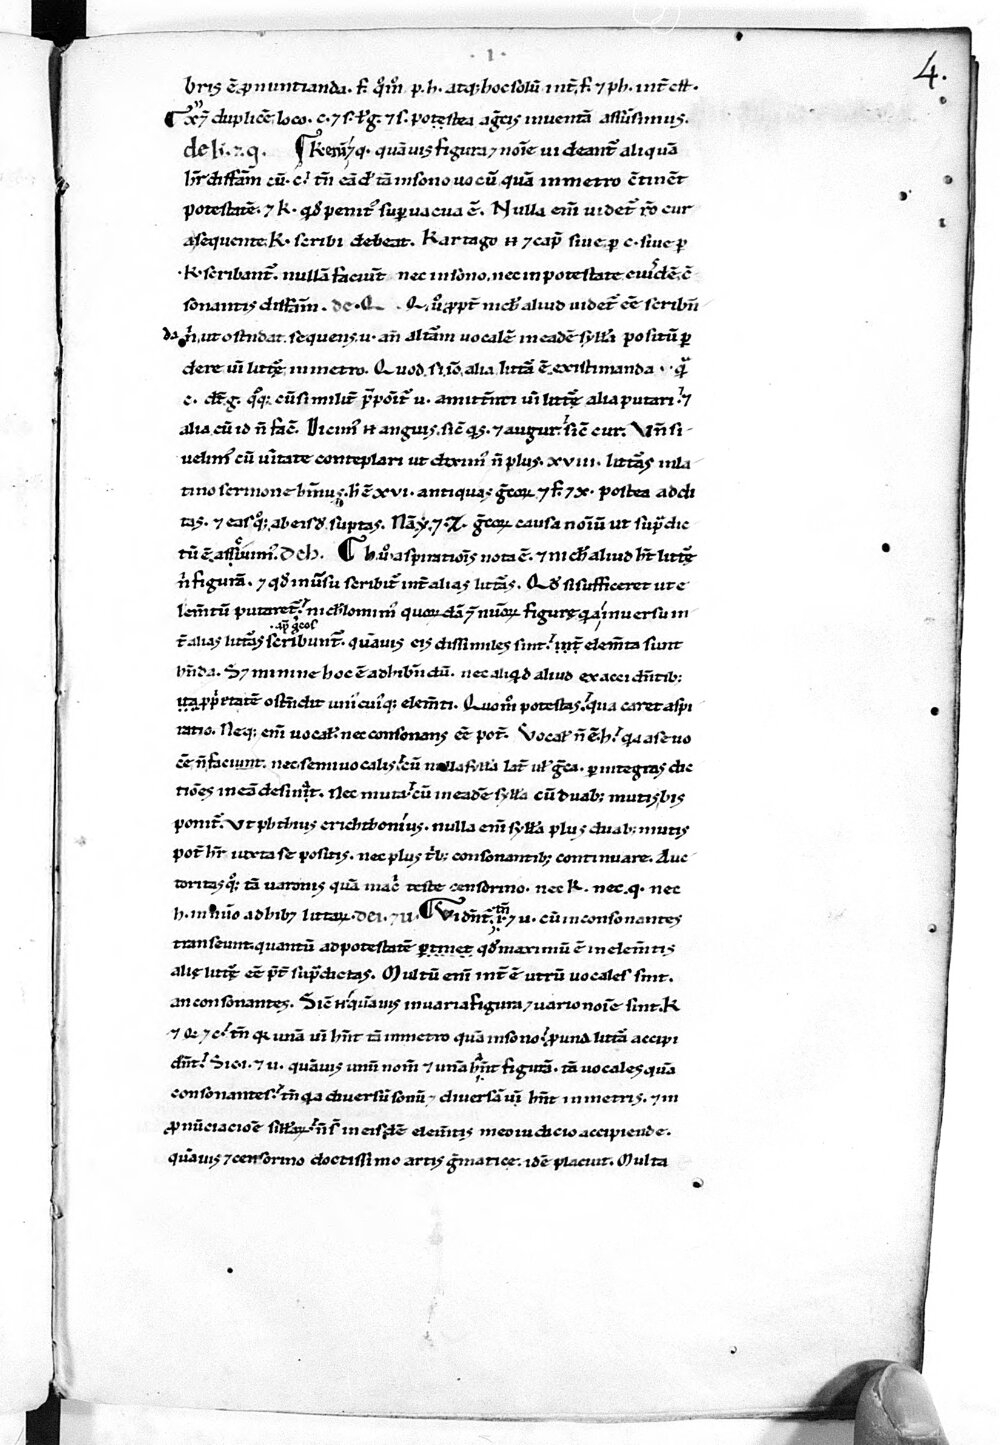 · 1 ·
4.
bris ē ꝓnuntianda. f. qͦm̄. p. h. atq; hoc solū int̄. f. ⁊ ph. int̄ est.
duplicē loco. c. ⁊ s. ł g. ⁊ s. postea a g̅cis inventā assūsimus.
de k. ⁊ q. K eni ⁊ q. quāvis figura ⁊ noīe videant̄ aliquā
hr̄e diffām cū. c. tn̄ eādē tā in sono vocū quā in metro ꝯtinēt
potestatē. ⁊ K. qd̄ penit᾽ supvacua ē. Nulla eni videt̄ rō cur
a sequente K. scribi debeat. Kartago n̄ ⁊ cap̄ sive ꝑ c. sive ꝑ
.K. scribant̄. nullā faciūt nec in sono, nec in potestate eiusdē ꝯ
sonantis diffām. de. Q. Q. ů ꝓpt̄ nichil aliud videt̄ ēē scribn̄
da n̄, ut ostndat. sequens. u. an̄ altām vocalē in eadē sylła positū ꝑ
dere vī littę in metro. Quod si iō alia littā ē existimanda. q̄
c. dt̄. g. qͦq; cū similit̄ p̄pōit̄ u. amittnti vī littę alia putari. ⁊
alia cū id n̄ facē. Dicim᾽ n̄ anguis, sic̄ qs. ⁊ augur. sic̄ cur. Vn̄ si
velim᾽ cū v̄itate contēplari ut dixim᾽ n̄ plus. xviii. littās in la
tino sermone hm̄us. h̄ ē xvi. antiquas g̅coꝝ ⁊ f. ⁊ x. postea addi
tas. ⁊ eas qͦ; ab eisd̄ suptas. Nā y. ⁊ z. g̅coꝝ causa noīū ut sup̄dic
tū ē assūsim᾽. De h. H. ů aspirationis nota ē. ⁊ nichil aliud ht̄ littę
n̄ figurā. ⁊ qd̄ in v̄su scribit̄ int̄ alias littās. Qd̄ si sufficeret ut e
lem̄tū putaret̄. nichilomin᾽ quoꝝdā ⁊ nūoꝝ figurę qͣ inversu in
ap̄ g̅cos
t̄ alias littās scribunt̄. quāvis eis dissimiles sint. int̄ elem̄ta sunt
hn̄da. S; minime hoc ē adhibn̄dū. nec aliqd aliud ex accidn̄tib;
ita ꝓp̄etatē ostn̄dit uni᾽cuiq; elem̄ti. Quom̄ potestas. qua caret aspi
ratio. Neq; eni vocał nec consonans ēē pot̄. Vocał n̄ ē h. qͣ a se vo
cē n̄ faciunt. nec semivocalis. cū nulla sylła lat̄ vł g̅ca. ꝑ integras dic
tiōes in eā desinit. Nec muta. cū in eadē sylła cū duab; mutis bis
ponit̄. Ut phthius erichthonius. nulla eni sylła plus duab; mutis
pot̄ hr̄e iuxta se positis. nec plus t̄b; consonantib; continuare. Auc
toritas qͦ; tā varonis quā mac̄ teste censorino. nec K. nec. q. nec
h. in nūo adhib; littaꝝ. De i. ⁊ u. Vidn̄t̄. i. ⁊ u. cū in consonantes
tm̄
transeunt. quantū ad potestatē ꝑtinet qd̄ maximū ē in elem̄tis
alię littę ēē p̄t̄ sup̄dictas. Multū eni int̄ ē utrū vocales sint.
an consonantes. Sic̄ n̄ quāvis in varia figura ⁊ vario noīe sint. K
⁊ Q. ⁊ c. tn̄ qͣ unā vī hn̄t tā in metro quā in sono. ꝓ una littā accipi
dn̄t. Sic i. ⁊ u. quāvis unū nom̄ ⁊ unā hn̄t figurā. tā vocales quā
consonantes. tn̄ qͣ diversū sonū ⁊ diversā vī hn̄t in metris. ⁊ in
ꝓnūciacioē siłłaꝝ. n̄ s̄ in eisdē elem̄tis meo iudicio accipiendę.
quāvis ⁊ censorino doctissimo artis g̅maticę. idē placuit. Multa